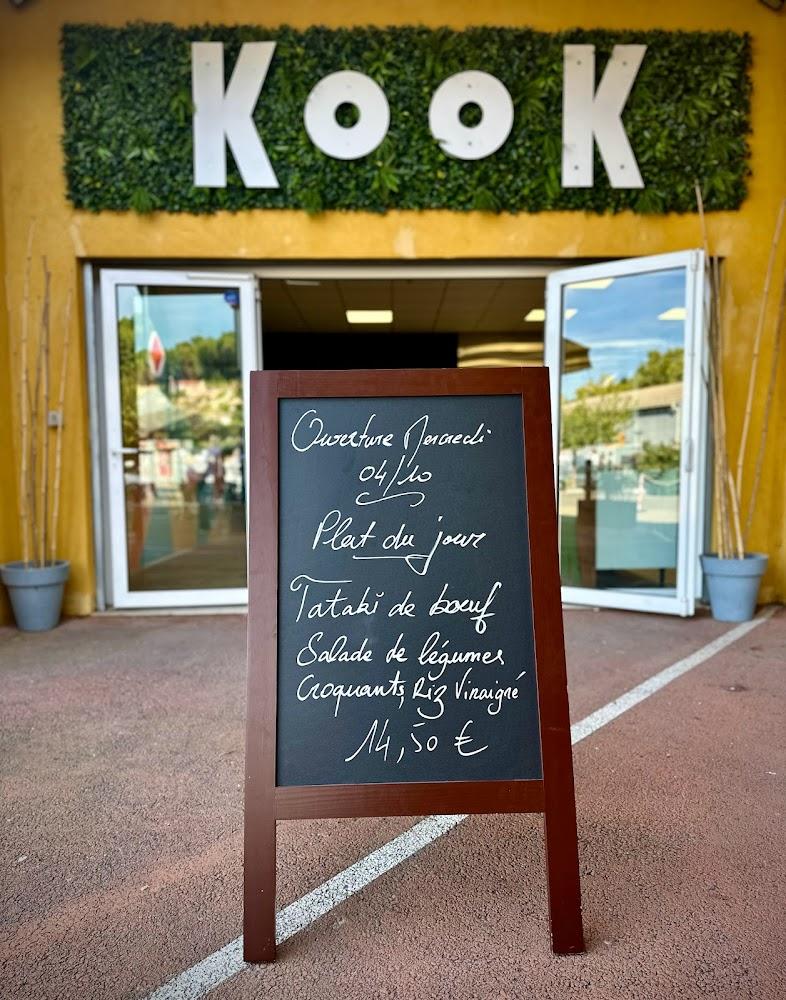 KOOK
Ouverture Mercredi
04/10
Plat du jour
Tataki de boeuf
Salade de légumes
Croquants, Riz Vinaigré
14,50 €